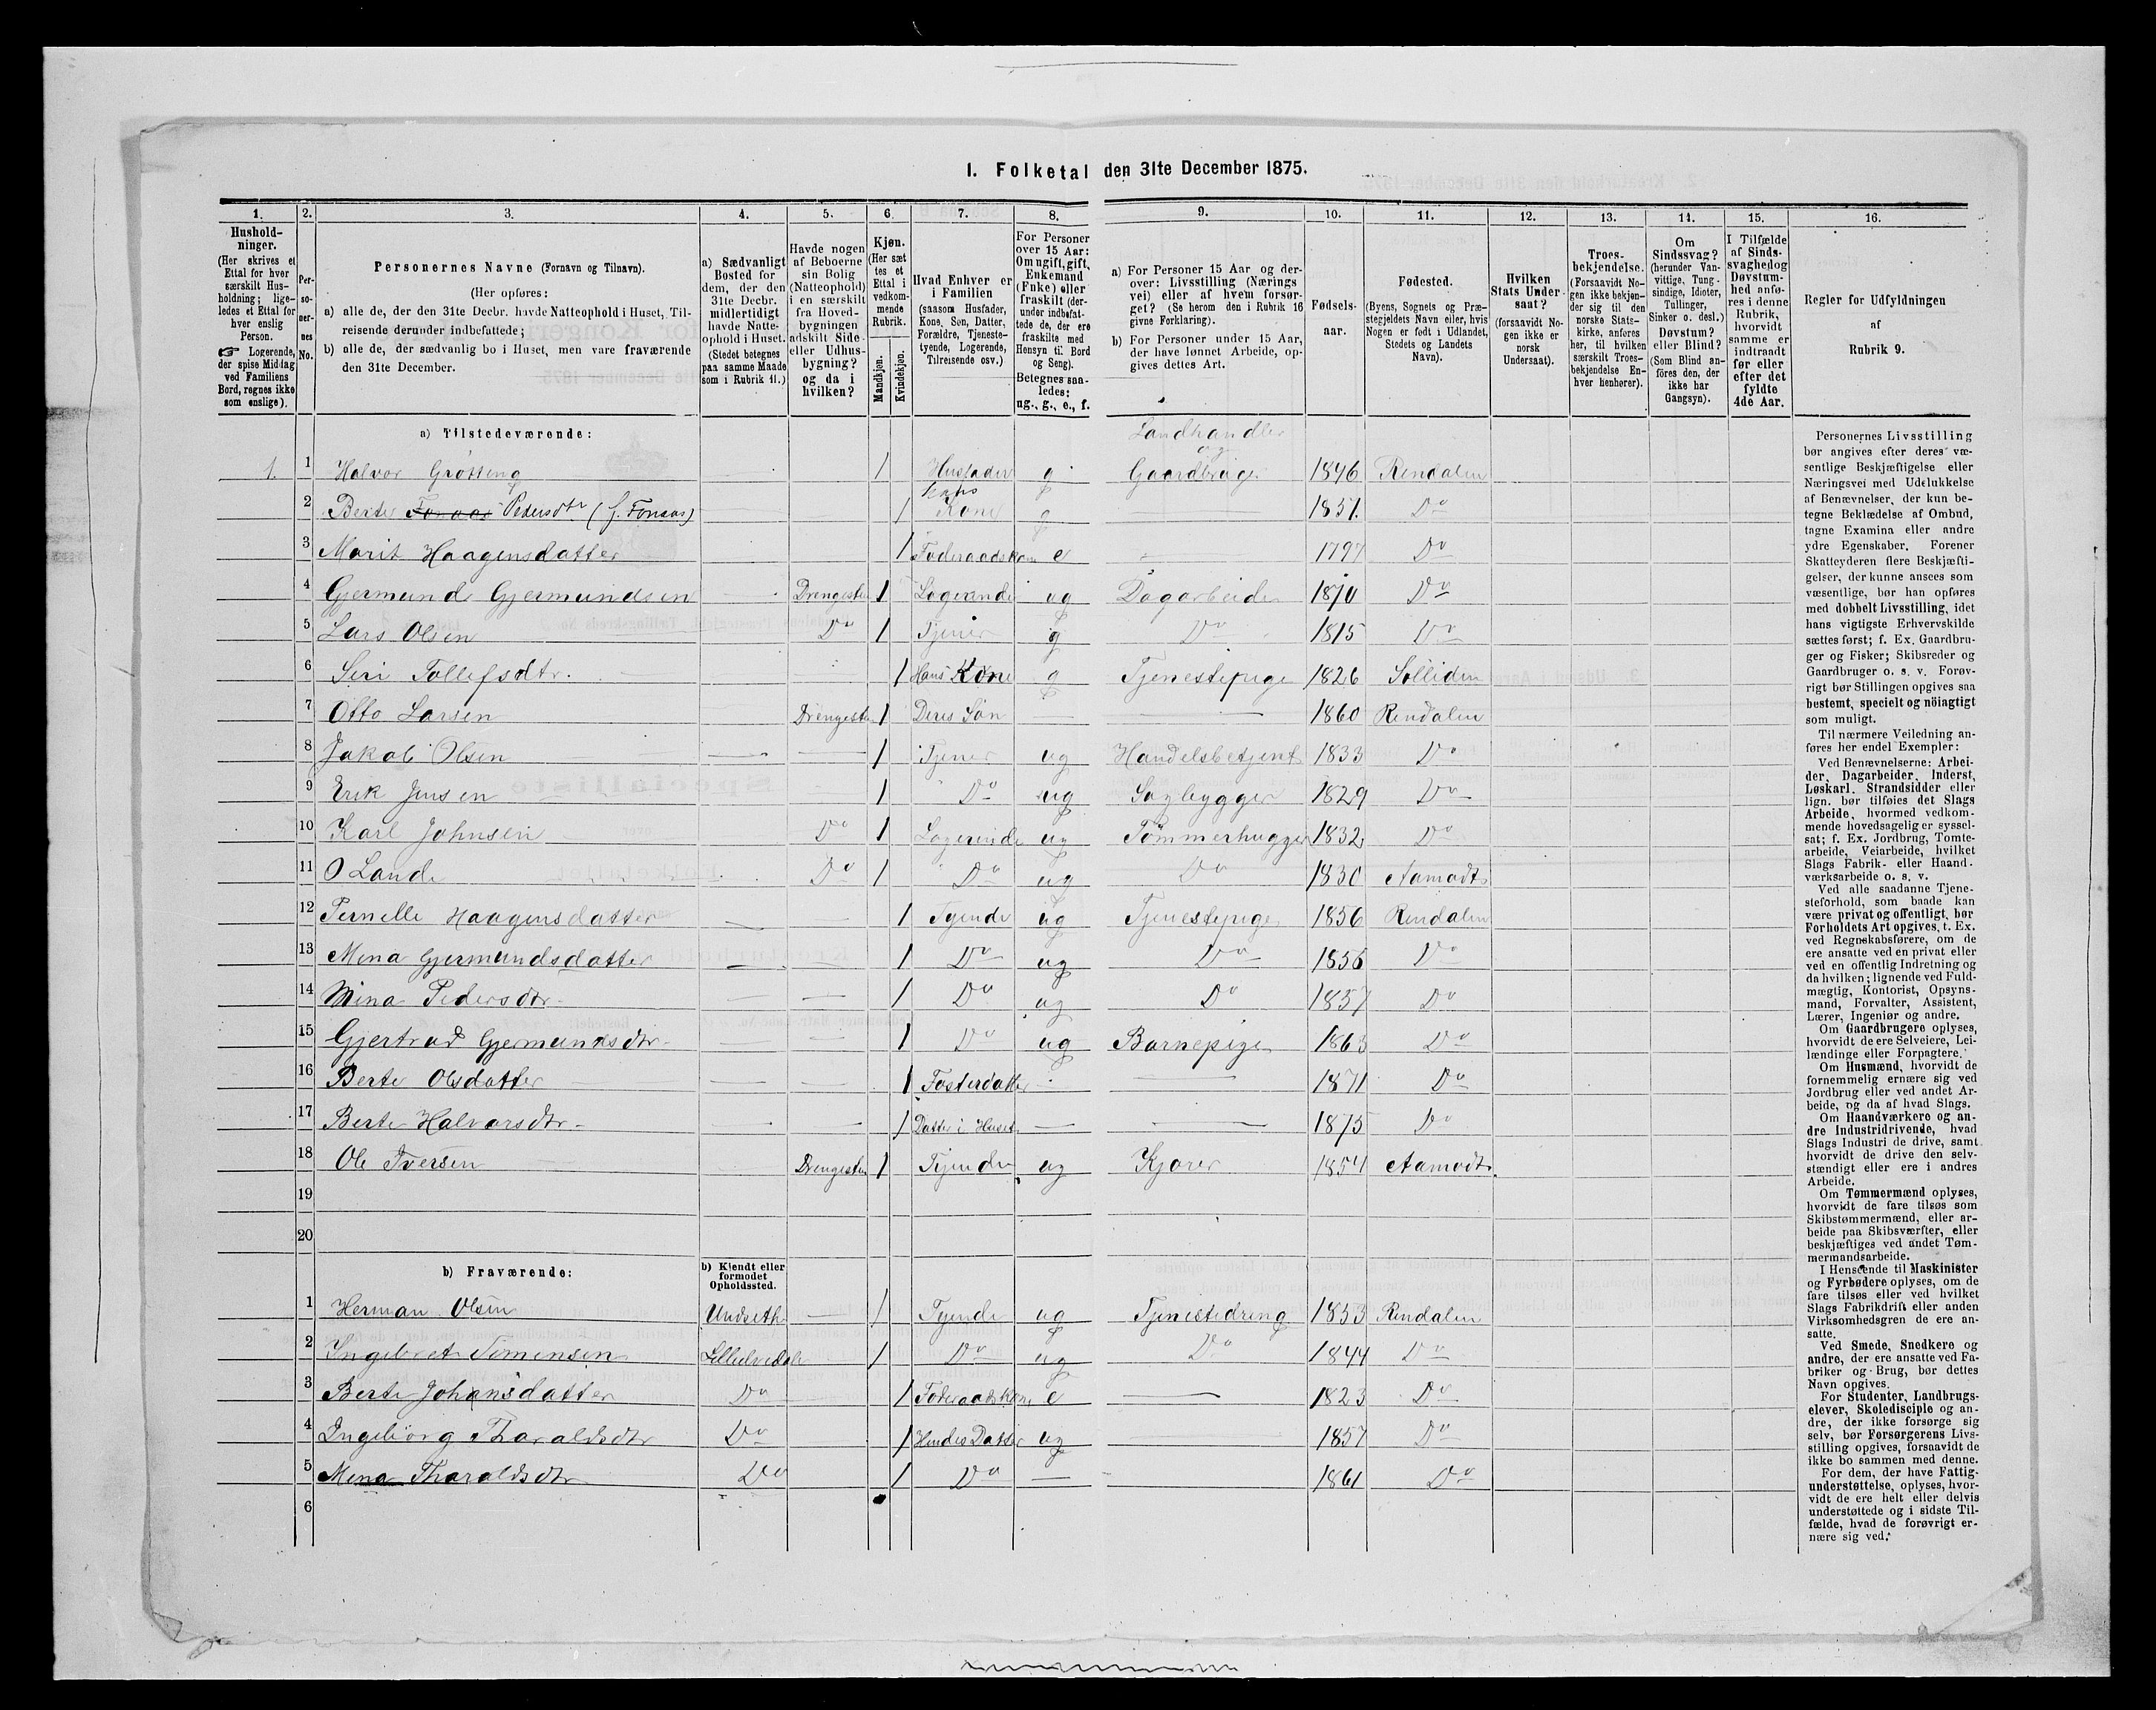 I. Folketal den 31te December 1875.
1. 2. 3. 4. 5. 6. 7. 8. 9. 10. 11. 12. 13. 14. 15. 16.
Hushold-
ninger.
(Her skrives et
Ettal for hver
særskilt Hus-
holdning; lige-
ledes et Ettal for
hver enslig
Person.
☞ Logerende,
der spise Middag
ved Familiens
Bord, regnes ikke
som enslige).
Per-
so-
ner-
nes
No.
Personernes Navne (Fornavn og Tilnavn).
(Her opføres:
a) alle de, der den 31te Decbr. havde Natteophold i Huset, Til-
reisende derunder indbefattede;
b) alle de, der sædvanlig bo i Huset, men vare fraværende
den 31te December.
a) Sædvanligt
Bosted for
dem, der den
31te Decbr.
midlertidigt
havde Natte-
ophold i Huset.
(Stedet betegnes
paa samme Maade
som i Rubrik 11.)
Havde nogen
af Beboerne
sin Bolig
(Natteophold)
i en særskilt
fra Hoved-
bygningen
adskilt Side-
eller Udhus-
bygning?
og da i
hvilken?
Kjøn.
(Her sæt
tes et
Ettal i
vedkom-
mende
Rubrik.
Mandkjøn.
Kvindekjøn.
Hvad Enhver er
i Familien
(saasom Husfader,
Kone, Søn, Datter,
Forældre, Tjeneste-
tyende, Logerende,
Tilreisende osv.)
For Personer
over 15 Aar:
Om ugift, gift,
Enkemand
(Enke) eller
fraskilt (der-
under indbefat-
tede de, der ere
fraskilte med
Hensyn til Bord
og Seng).
Betegnes saa-
ledes:
ug., g., e., f.
a) For Personer 15 Aar og der-
over: Livsstilling (Nærings
vei) eller af hvem forsør-
get? (Se herom den i Rubrik 16
givne Forklaring).
b) For Personer under 15 Aar,
der have lønnet Arbeide, op-
gives dettes Art.
Fødsels-
aar.
Fødested.
(Byens, Sognets og Præ-
stegjeldets Navn eller, hvis
Nogen er født i Udlandet,
Stedets og Landets
Navn).
Hvilken
Stats Under-
saat?
(forsaavidt No-
gen ikke er
norsk
Undersaat).
Troes-
bekjendelse.
(Forsaavidt No-
gen ikke bekjen-
der sig til den
norske Stats-
kirke, anføres
her, til hvilken
særskilt Troes-
bekjendelse En-
hver henhører).
Om
Sindssvag?
(herunder Van-
vittige, Tung-
sindige, Idioter,
Tullinger,
Sinker o. desl.)
Døvstum?
eller Blind?
(Som Blind an-
føres den, der
ikke har
Gangsyn).
I Tilfælde
af Sinds-
svaghed og
Døvstum-
hed anfø-
res i denne
Rubrik,
hvorvidt
samme er
indtraadt
før eller
efter det
fyldte
4de Aar.
Regler for Udfyldningen
af
Rubrik 9.
a) Tilstedeværende:
Landhandler
og
1. 1 Halvor Grötting 1 Husfader g Gaardbruger 1846 Rendalen
2 Berte Fonaas Pedersdtr (f. Fonaas) 1 Hans Kone g 1851 Do
3 Marit Haagensdatter 1 Föderaadskone e 1797 Do
4 Gjermund Gjermundsen Drengestue 1 Logerende ug Dagarbeider 1870 Do
5 Lars Olsen Do 1 Tjener g Do 1815 Do
6 Siri Tollefsdtr. 1 Hans Kone g Tjenestepige 1826 Solliden
7 Otto Larsen Drengestue 1 Deres Sön 1860 Rendalen
8 Jakob Olsen 1 Tjener ug Handelsbetjent 1833 Do
9 Erik Jensen 1 Do ug Sagbygger 1829 Do
10 Karl Johnsen Do 1 Logerende ug Tömmerhugger 1832 Do
11 O Lande Do 1 Do ug Do 1830 Aamodt
12 Pernelle Haagensdatter 1 Tyende ug Tjenestepige 1856 Rendalen
13 Mina Gjermundsdatter 1 Do ug Do 1856 Do
14 Mina Pedersdtr 1 Do ug Do 1857 Do
15 Gjertrud Gjermundsdtr 1 Do ug Barnepige 1863 Do
16 Berte Olsdatter 1 Fosterdatter 1871 Do
17 Berte Halvorsdtr 1 Datter i Huset 1875 Do
18 Ole Iversen Drengestue 1 Tyende ug Kjører 1854 Aamodt
19
20
b) Fraværende:
b) Kjendt eller
formodet
Opholdssted.
1 Herman Olsen Undseth 1 Tyende ug Tjenestedreng 1853 Rendalen
2 Ingebret Simensen Lilleelvedalen 1 Do ug Do 1844 Do
3 Berte Johansdatter Do 1 Föderaadskone e 1823 Do
4 Ingebörg Tharaldsdtr Do 1 Hendes Datter ug 1857 Do
5 Mina Tharaldsdtr Do 1 Do 1861 Do
6
Personernes Livsstilling
bør angives efter deres væ-
sentlige Beskjæftigelse eller
Næringsvei med Udelukkelse
af Benævnelser, der kun be-
tegne Beklædelse af Ombud,
tagne Examina eller andre
ydre Egenskaber. Forener
Skatteyderen flere Beskjæfti-
gelser, der kunne ansees som
væsentlige, bør han opføres
med dobbelt Livsstilling, idet
hans vigtigste Erhvervskilde
sættes først; f. Ex. Gaardbru-
ger og Fisker; Skibsreder og
Gaardbruger o. s. v. Forøv-
rigt bør Stillingen opgives saa
bestemt, specielt og nöiagtigt
som muligt.
Til nærmere Veiledning an-
føres her endel Exempler:
Ved Benævnelserne: Arbei-
der, Dagarbeider, Inderst,
Løskarl, Strandsidder eller
lign. bør tilføies det Slags
Arbeide, hvormed vedkom-
mende hovedsagelig er syssel-
sat; f. Ex. Jordbrug, Tomte-
arbeide, Veiarbeide, hvilket
Slags Fabrik- eller Haand-
værksarbeide o. s. v.
Ved alle saadanne Tjene-
steforhold, som baade kan
være privat og offentligt, bør
Forholdets Art opgives, t. Ex.
ved Regnskabsførere, om de
ere ansatte ved en privat eller
ved en offentlig Indretning og
da hvilken; lignende ved Fuld-
mægtig, Kontorist, Opsyns-
mand, Forvalter, Assistent,
Lærer, Ingeniør og andre.
Om Gaardbrugere oplyses,
hvorvidt de ere Selveiere, Lei-
lændinge eller Forpagtere.
Om Husmænd, hvorvidt de
fornemmelig ernære sig ved
Jordbrug eller ved andet Ar-
beide, og da af hvad Slags.
Om Haandværkere og an-
dre Industridrivende, hvad
Slags Industri de drive, samt
hvorvidt de drive den selv-
stændigt eller ere i andres
Arbeide.
Om Tømmermænd oplyses,
hvorvidt de fare tilsøs som
Skibstømmermænd, eller ar-
beide paa Skibsværfter, eller
beskjæftiges ved andet Tøm-
mermandsarbeide.
I Henseende til Maskinister
og Fyrbødere oplyses, om de
fare tilsøs eller ved hvilket
Slags Fabrikdrift eller anden
Virksomhedsgren de ere an-
satte.
Ved Smede, Snedkere og
andre, der ere ansatte ved Fa-
briker og Brug, bør dettes
Navn opgives.
For Studenter, Landbrugs-
elever, Skoledisciple og an-
dre, der ikke forsørge sig
selv, bør Forsørgerens Livs-
stilling opgives, forsaavidt de
ikke bo sammen med denne.
For dem, der have Fattig-
understøttelse, oplyses, hvor-
vidt de ere helt eller delvis
understøttede og i sidste Til-
fælde, hvad de forøvrigt er-
nære sig ved.